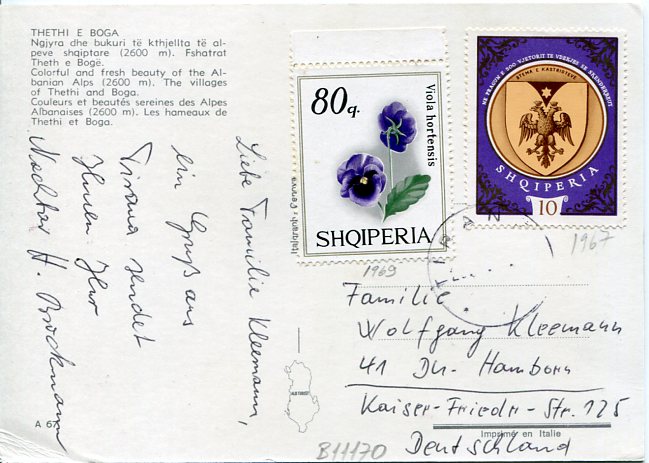 THETHI E BOGA
Ngjyra dhe bukuri të kthjellta të al-
peve shqiptare (2600 m). Fshatrat
Theth e Bogë.
Colorful and fresh beauty of the Al-
banian Alps (2600 m). The villages
of Thethi and Boga.
Couleurs et beautés sereines des Alpes
Albanaises (2600 m). Les hameaux de
Thethi et Boga.
Liebe Familie Kleemann,
ein Gruß aus
Tirana sendet
Ihnen Ihr
Nachbar H. Brockmann
A 67
80 q.
Viola hortensis
SHQIPERIA
1969
NE PRAGUN E 500 VJETORIT TE VDEKJES SE SKENDERBEUT
STEMA E KASTRIOTEVE
SHQIPERIA
10
1967
Familie
Wolfgang Kleemann
41 Du-Hamborn
Kaiser-Friedr-Str. 125
Deutschland
ALBTURIST
Imprimé en Italie
B11170